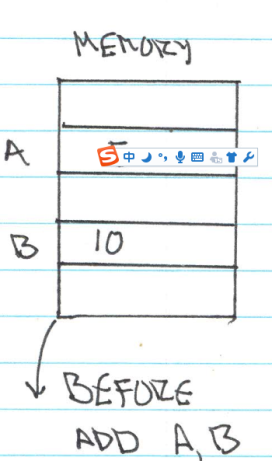 MEMORY
A S 中
B 10
BEFORE
ADD A, B